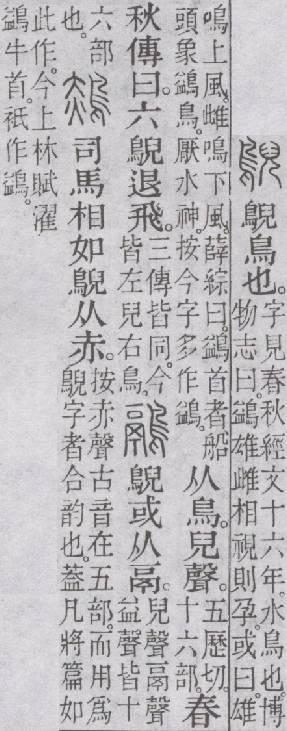 鶂鶂鳥也。字見春秋經文十六年。水鳥也。博物志曰。鷁雄雌相視則孕。或曰。雄
鳴上風。雌鳴下風。薛綜曰。鷁首者船頭象鷁鳥。厭水神。按今字多作鷁。从鳥。兒聲。五歷切。十六部。春
秋傳曰。六鶂退飛。三傳皆同。今皆左兒右鳥。鷊鶂或从鬲。兒聲鬲聲益聲皆十
六部也。司馬相如鶂从赤。按赤聲古音在五部。而用爲鶂字者合韵也。葢凡將篇如
此作。今上林賦濯鷁牛首。袛作鷁。